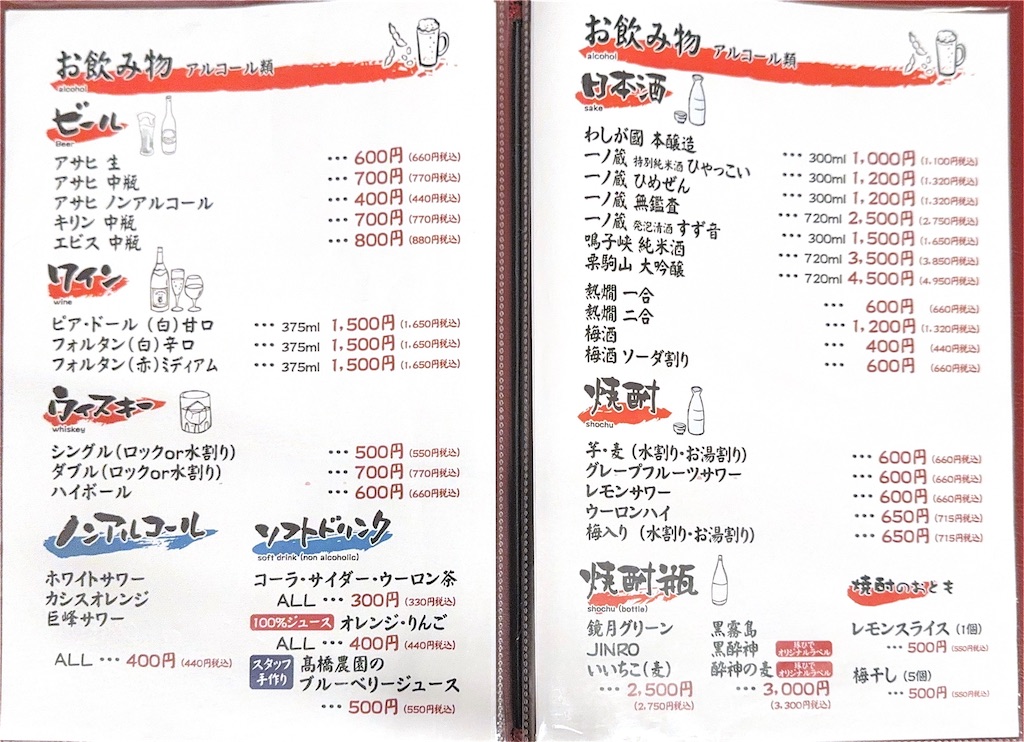 お飲み物 アルコール類
alcohol
ビール
Beer
アサヒ 生 … 600円 (660円税込)
アサヒ 中瓶 … 700円 (770円税込)
アサヒ ノンアルコール … 400円 (440円税込)
キリン 中瓶 … 700円 (770円税込)
エビス 中瓶 … 800円 (880円税込)
ワイン
wine
ピア・ドール (白)甘口 … 375ml 1,500円 (1,650円税込)
フォルタン(白)辛口 … 375ml 1,500円 (1,650円税込)
フォルタン(赤)ミディアム … 375ml 1,500円 (1,650円税込)
ウィスキー
whiskey
シングル(ロックor水割り) … 500円 (550円税込)
ダブル(ロックor水割り) … 700円 (770円税込)
ハイボール … 600円 (660円税込)
ノンアルコール
ホワイトサワー
カシスオレンジ
巨峰サワー
ALL … 400円 (440円税込)
ソフトドリンク
soft drink (non alcoholic)
コーラ・サイダー・ウーロン茶
ALL … 300円 (330円税込)
100%ジュース オレンジ・りんご
ALL … 400円 (440円税込)
スタッフ手作り 髙橋農園の
ブルーベリージュース
… 500円 (550円税込)
お飲み物 アルコール類
alcohol
日本酒
sake
わしが國 本醸造 … 300ml 1,000円 (1,100円税込)
一ノ蔵 特別純米酒 ひゃっこい … 300ml 1,200円 (1,320円税込)
一ノ蔵 ひめぜん … 300ml 1,200円 (1,320円税込)
一ノ蔵 無鑑査 … 720ml 2,500円 (2,750円税込)
一ノ蔵 発泡清酒 すず音 … 300ml 1,500円 (1,650円税込)
鳴子峡 純米酒 … 720ml 3,500円 (3,850円税込)
栗駒山 大吟醸 … 720ml 4,500円 (4,950円税込)
熱燗 一合 … 600円 (660円税込)
熱燗 二合 … 1,200円 (1,320円税込)
梅酒 … 400円 (440円税込)
梅酒 ソーダ割り … 600円 (660円税込)
焼酎
shochu
芋・麦 (水割り・お湯割り) … 600円 (660円税込)
グレープフルーツサワー … 600円 (660円税込)
レモンサワー … 600円 (660円税込)
ウーロンハイ … 650円 (715円税込)
梅入り (水割り・お湯割り) … 650円 (715円税込)
焼酎瓶
shochu (bottle)
鏡月グリーン
JINRO
いいちこ(麦)
… 2,500円
(2,750円税込)
黒霧島
黒酔神 オリジナルラベル
酔神の麦 オリジナルラベル
… 3,000円
(3,300円税込)
焼酎のおとも
レモンスライス (1個)
… 500円 (550円税込)
梅干し (5個)
… 500円 (550円税込)